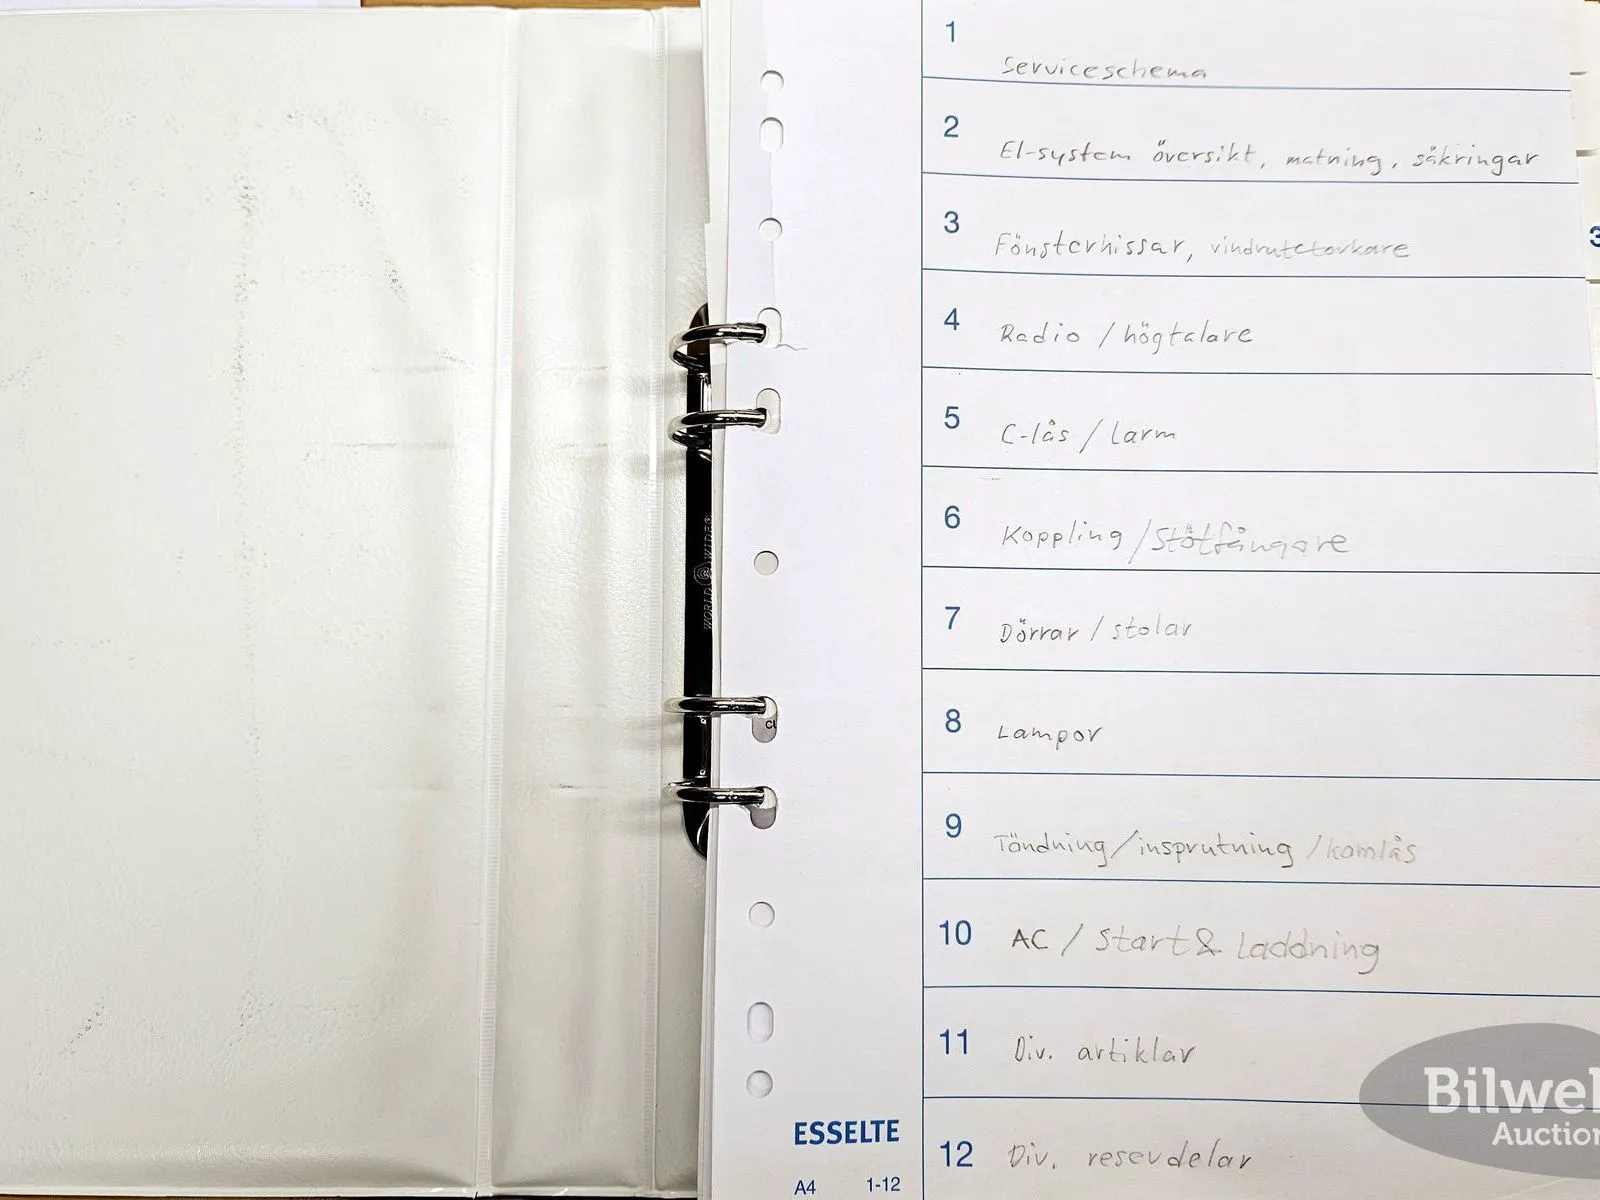 1
Serviceschema
2
El-system översikt, matning, säkringar
3
Fönsterhissar, vindrutetorkare
4
Radio / högtalare
5
C-lås / larm
6
Koppling / Stötfångare
7
Dörrar / stolar
8
Lampor
9
Tändning / insprutning / kamlås
10
AC / Start & Laddning
11
Div. artiklar
12
Div. resevdelar
ESSELTE
A4 1-12
WORLD WIDE
3
Auction